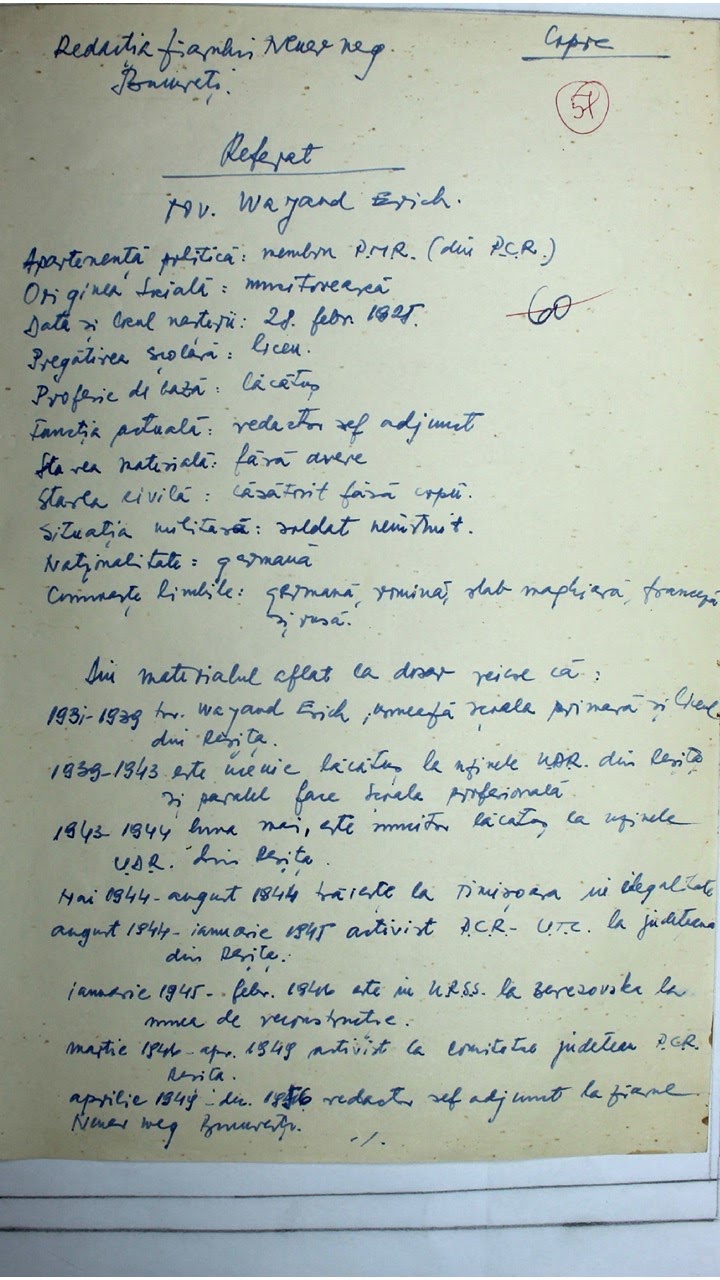 Redacția ziarului Neuer Weg.
București.
Copie
57
Referat
tov. Wayand Erich.
Apartenență politică: membru P.M.R. (din P.C.R.)
Originea socială: muncitorească
Data și locul nașterii: 28. febr. 1925.
60
Pregătirea școlară: liceu.
Profesie de bază: lăcătuș
Funcția actuală: redactor șef adjunct
Starea materială: fără avere
Starea civilă: căsătorit fără copii.
Situația militară: soldat neinstruit.
Naționalitate: germană
Cunoaște limbile: germană, romînă, slab maghiară, franceză
și rusă.
Din materialul aflat la dosar reiese că:
1931-1939 tov. Wayand Erich, urmează școala primară și liceul
din Reșița.
1939-1943 este ucenic lăcătuș la uzinele UDR. din Reșița
și paralel face școala profesională.
1943-1944 luna mai, este muncitor lăcătuș la uzinele
UDR. din Reșița.
Mai 1944-august 1944 trăiește la Timișoara în ilegalitate
august 1944-ianuarie 1945 activist P.C.R.-U.T.C. la județeana
din Reșița.
ianuarie 1945- febr. 1946 este în U.R.S.S. la Berezovska la
munca de reconstrucție.
martie 1946-apr. 1949 activist la comitetul județean P.C.R.
Reșița.
aprilie 1949-dec. 1956 redactor șef adjunct la ziarul
Neuer Weg București.
./.